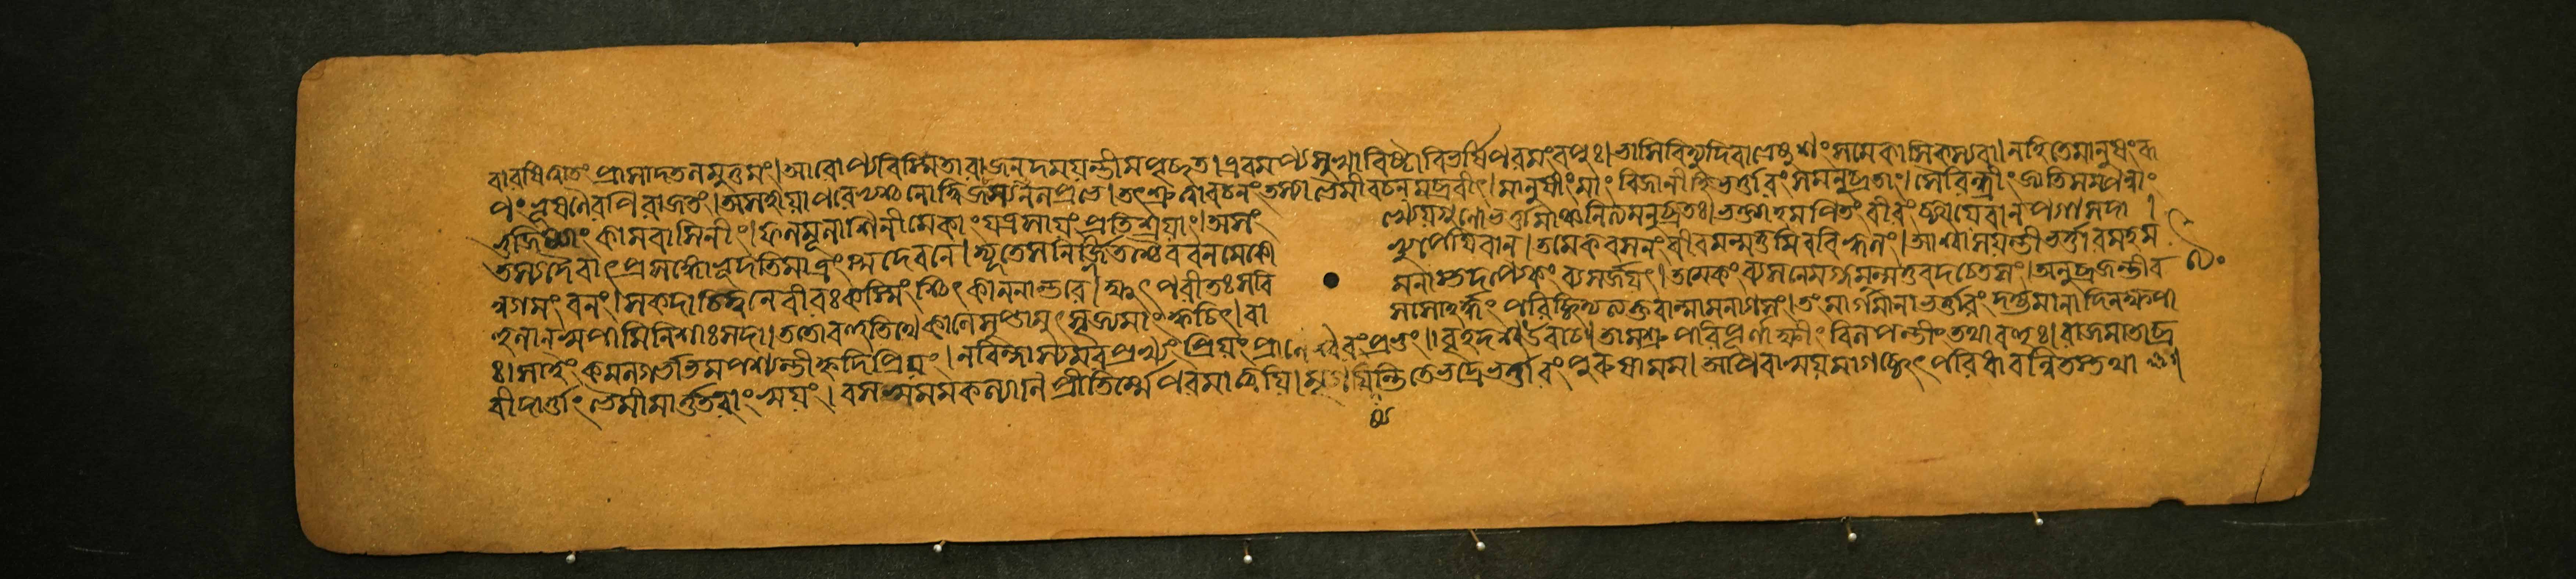 বাবযিত্বাতং প্রাসাদতনমুত্তমং।আরোপ্যবিস্মিতারাজনদময়ন্তীমপৃচ্ছত।এবমপ্যসুখাবিষ্টাবিভর্ষিপরমংবপুঃ।ভাসিবিদ্যুদিবাভ্রেষুশংসমেকাসিকস্যবা।নহিতেমানুষংৰূ
পংভূষণৈরপিবর্জিতং।অসহায়াপরেভ্যশ্চনোদ্বিজস্যমনপ্রভে।তৎশ্রুত্বাবচনংতস্যাভৈমীবচনমব্রবীৎ।মানুষীংমাং বিজানীহিভর্ত্তারংসমনুব্রতাং।সৈরিন্ধ্রীংজাতিসম্পন্নাং
ভুজিষ্যাং কামবাসিনীং।ফলমূলাশিনীমেকাংযত্রসায়ংপ্রতিশ্রয়াং।অসং খ্যেয়গুণোভর্ত্তামাঞ্চনিত্যমনুব্রতঃ।ভক্তাহমপিতংবীরংছায়েবানপগাসদা।
তস্যদৈবাৎপ্রসঙ্গোভূদতিমাত্রংস্মদেবনে।দ্যূতেসনির্জ্জিতশ্চৈববনমেকো ভ্যুপেয়িবান্।তমেকবসনংবীরমুন্মত্তমিববিহ্বলং।আশ্বাসয়ন্তীভর্ত্তারমহম
ন্বগমংবনং।সকদাচিদ্বনেবীরঃকস্মিংশ্চিৎকাননান্তরে।ক্ষুৎপরীতঃসবি মনাস্তদপ্যেকংব্যসর্জয়ৎ।তমেকংব্যসনেমগ্নমুন্মত্তবদচেতসং।অনুব্রজন্তীব
হুলানস্বপামিনিশাঃসদা।ততোবহুতিথেকালেসুপ্তামুৎসৃজ্যমাংক্বচিৎ।বা সসোর্দ্ধং পরিচ্ছিদ্যত্যক্তবান্মামনাগসং।তংমার্গমানাভর্ত্তারংদহ্যমানাদিনক্ষপা
ঃ।সাহং কমলগর্ভাভমপশ্যন্তীহৃদিপ্রিয়ং।নবিন্দাম্যমরপ্রখ্যংপ্রিয়ংপ্রাণেশ্বরংপ্রভুং।।বৃহদশ্বউবাচ।তামশ্রুপরিপূর্ণাক্ষীং বিলপন্তীংতথাবহুঃ।রাজমাতাব্র
বীদার্ত্তাংভৈমীমার্ত্ততরাংস্বয়ং।বসস্বমমকল্যাণিপ্রীতির্ম্মেপরমাত্বয়ি।মৃগয়িষ্যন্তিতেভদ্রেভর্ত্তারংপুরুষামম।অপিবাস্বয়মাগচ্ছেৎপরিধাবন্নিতস্ততঃ।